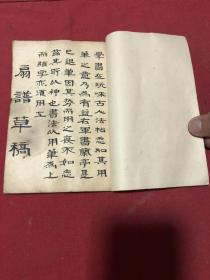 學書在玩味古人法帖悉知其用
筆之意乃為有益右軍書蘭亭是
已退筆因其勢而用之無不如志
茲其所以神也書法以用筆為上
而結字亦須用工
扇譜草稿